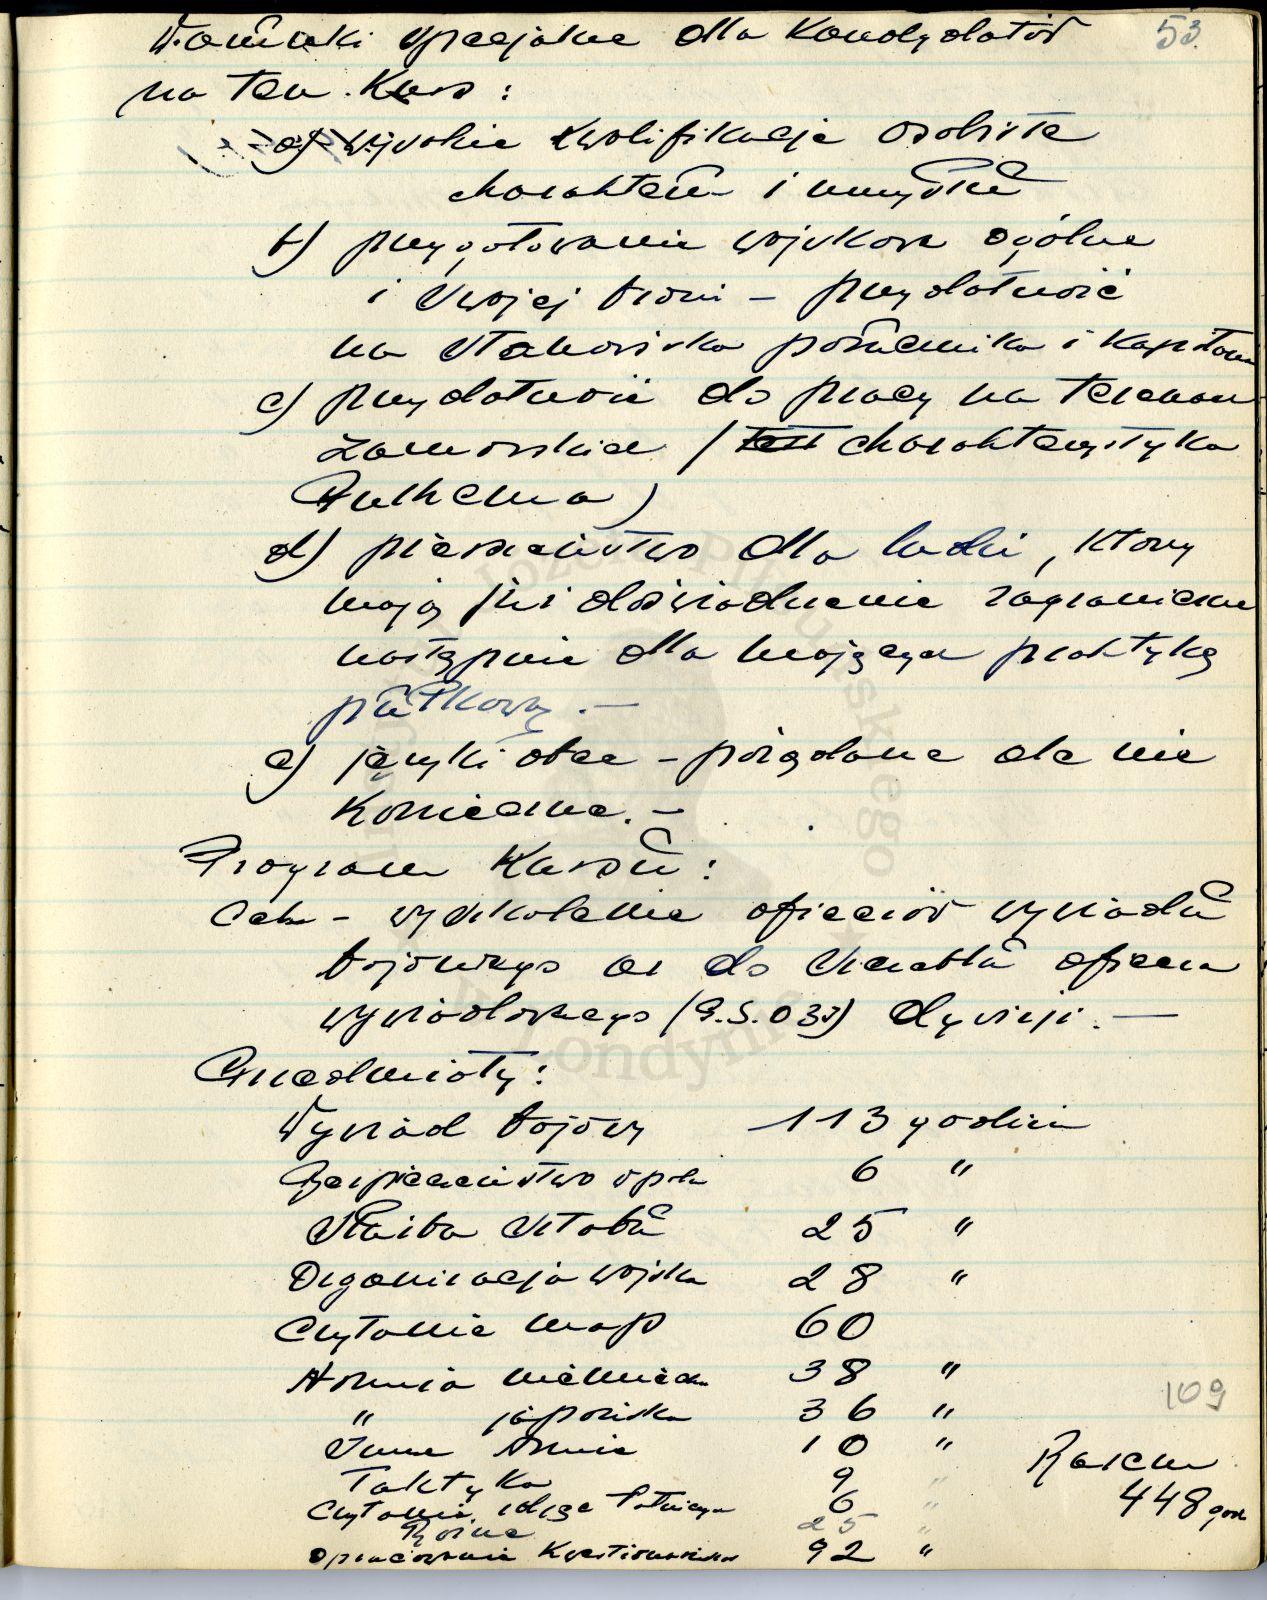 53
Warunki specjalne dla Kandydatów
na ten Kurs:
a) wysokie kwalifikacje osobiste
charakteru i umysłu
b) przygotowanie wojskowe ogólne
i swojej broni – przydatność
na stanowiska porucznika i kapitana
c) przydatność do pracy na terenach
zamorskich / charakterystyka
d) pierwszeństwo dla ludzi, którzy
mają już doświadczenie zagraniczne
następnie dla mających praktykę
pułkową. –
e) języki obce – pożądane ale nie
konieczne. –
Program Kursu:
Cel – wyszkolenie oficerów wywiadu
bojowego do szczebla oficera
wywiadowczego (G.S.O 3) dywizji. —
Przedmioty:
Wywiad bojowy 113 godzin
Bezpieczeństwo 6 "
Służba Sztabu 25 "
Organizacja wojska 28 "
Czytanie map 60
Armia niemiecka 38 "
" japońska 36 "
Inne Armie 10 "
Taktyka 9 "
Czytanie zdjęć lotniczych 6 "
Różne 25 "
Opracowanie Kwestionariuszy 92 "
Razem
448 godz
109
Józefa Piłsudskiego
Londynie